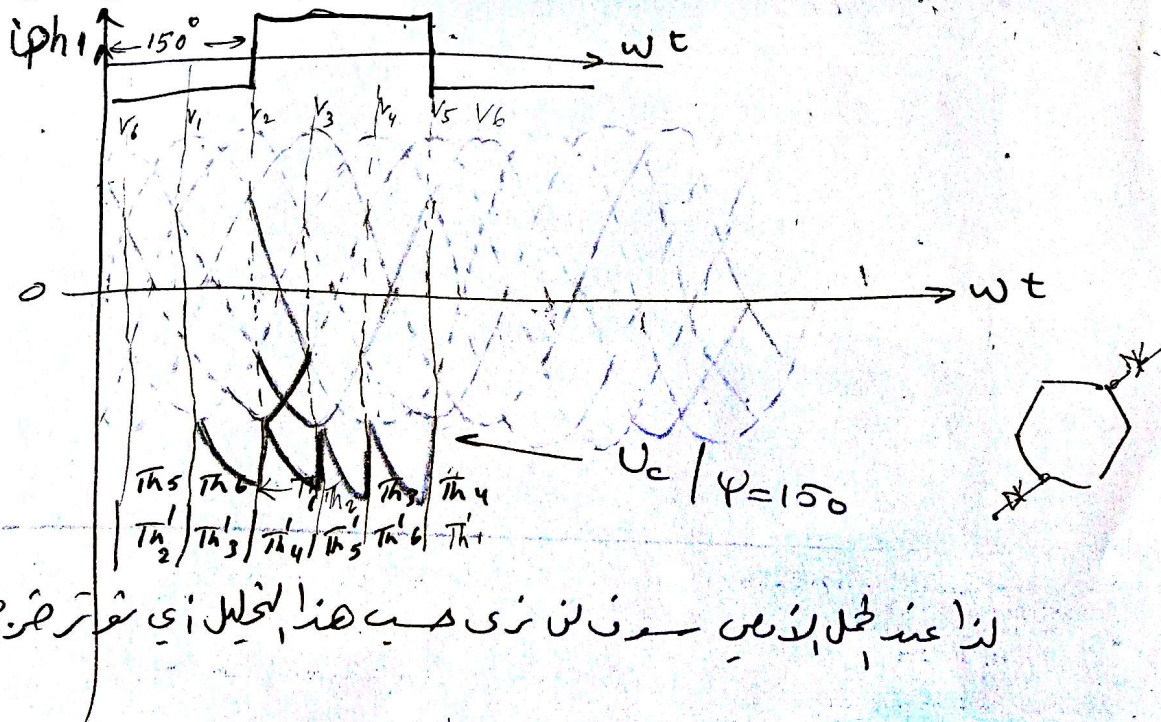 iph1
←150°→
ωt
V6 V1 V2 V3 V4 V5 V6
0
ωt
Uc / φ=150
Th5 Th6 Th2 Th3 Th4
Th'2 Th'3 Th'4 Th'5 Th'6 Th'1
لذا عند الحمل الأومي سوف لن نرى حسب هذا التحليل أي توتر